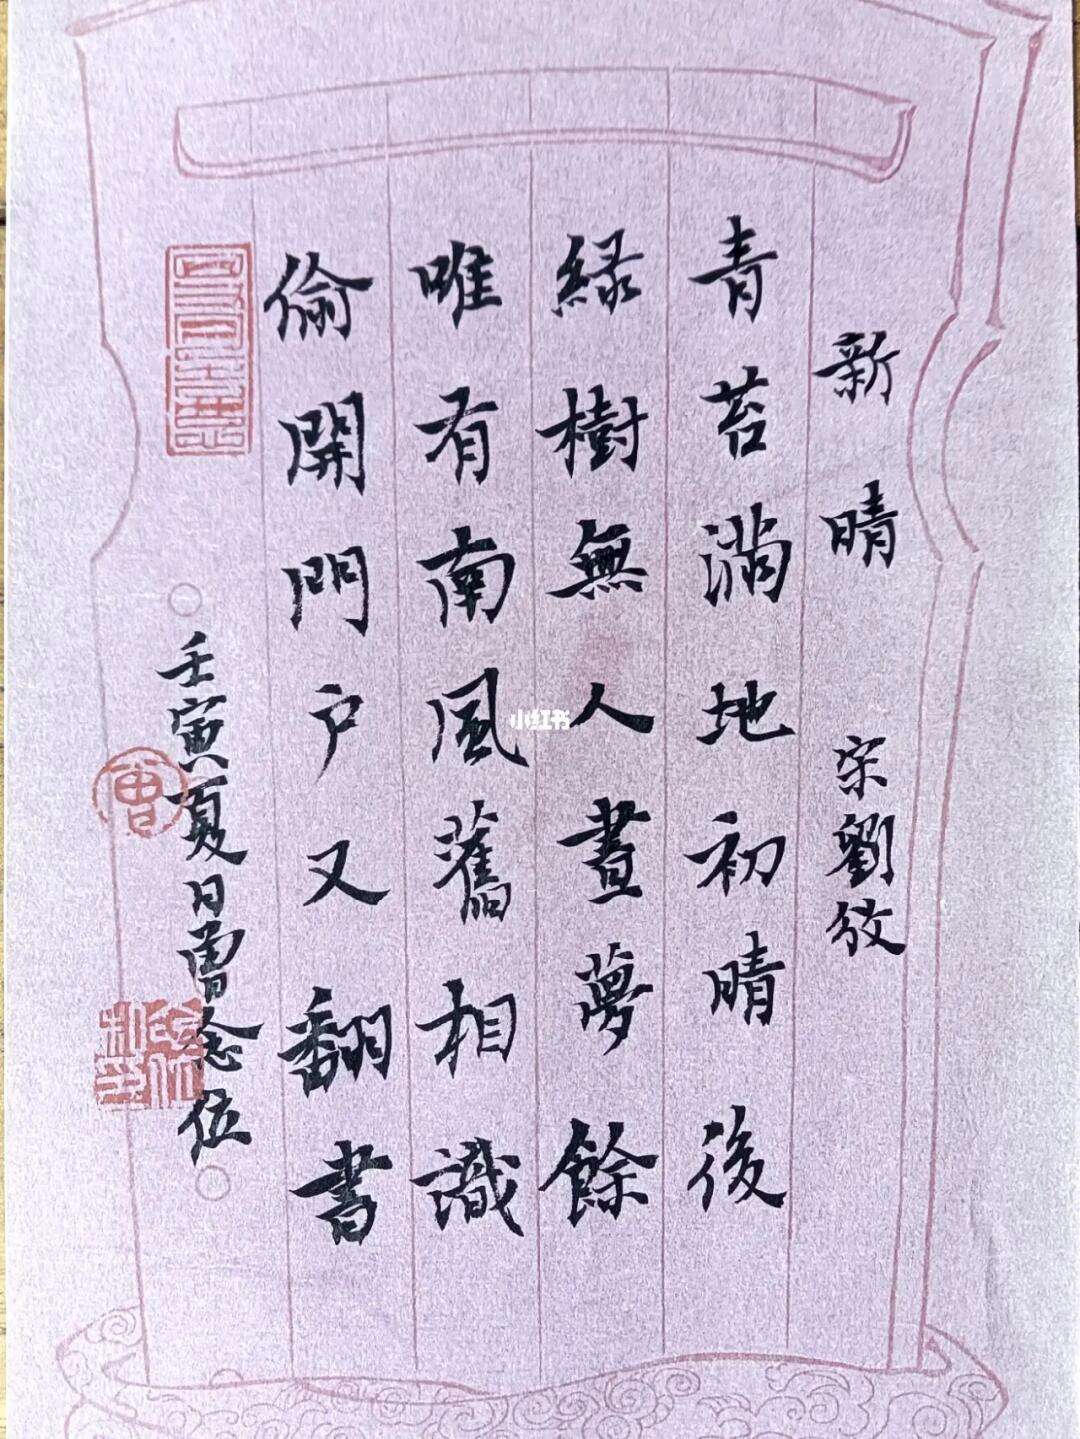 新晴 宋劉攽
青苔滿地初晴後
緑樹無人晝夢餘
唯有南風舊相識
偷開門戶又翻書
壬寅夏日曾念位
曾
小红书